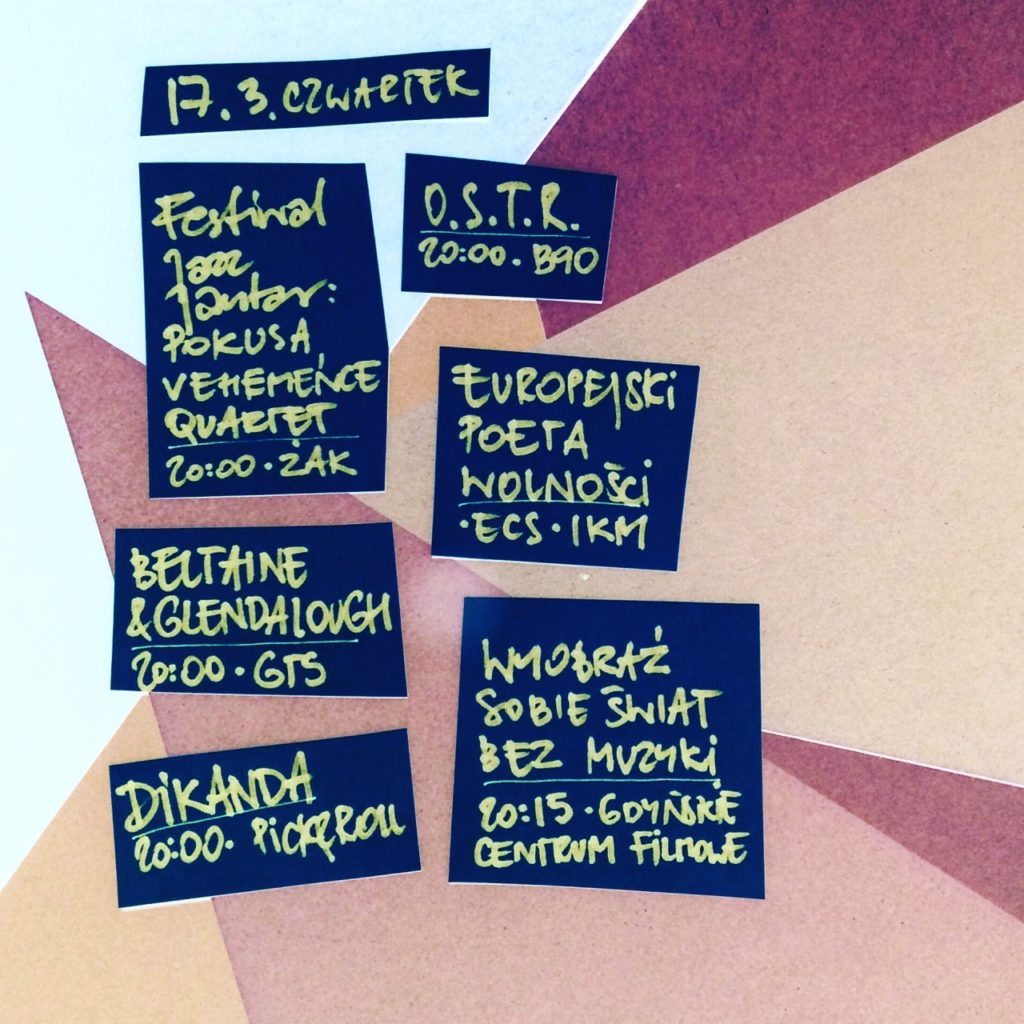 17.3. CZWARTEK
Festiwal
Jazz
Jantar:
POKUSA,
VEHEMENCE
QUARTET
20:00 · ŻAK
O.S.T.R.
20:00 · B90
EUROPEJSKI
POETA
WOLNOŚCI
· ECS · IKM
BELTAINE
& GLENDALOUGH
20:00 · GTS
WYOBRAŹ
SOBIE ŚWIAT
BEZ MUZYKI
20:15 · GDYŃSKIE
CENTRUM FILMOWE
DIKANDA
20:00 · PICK&ROLL